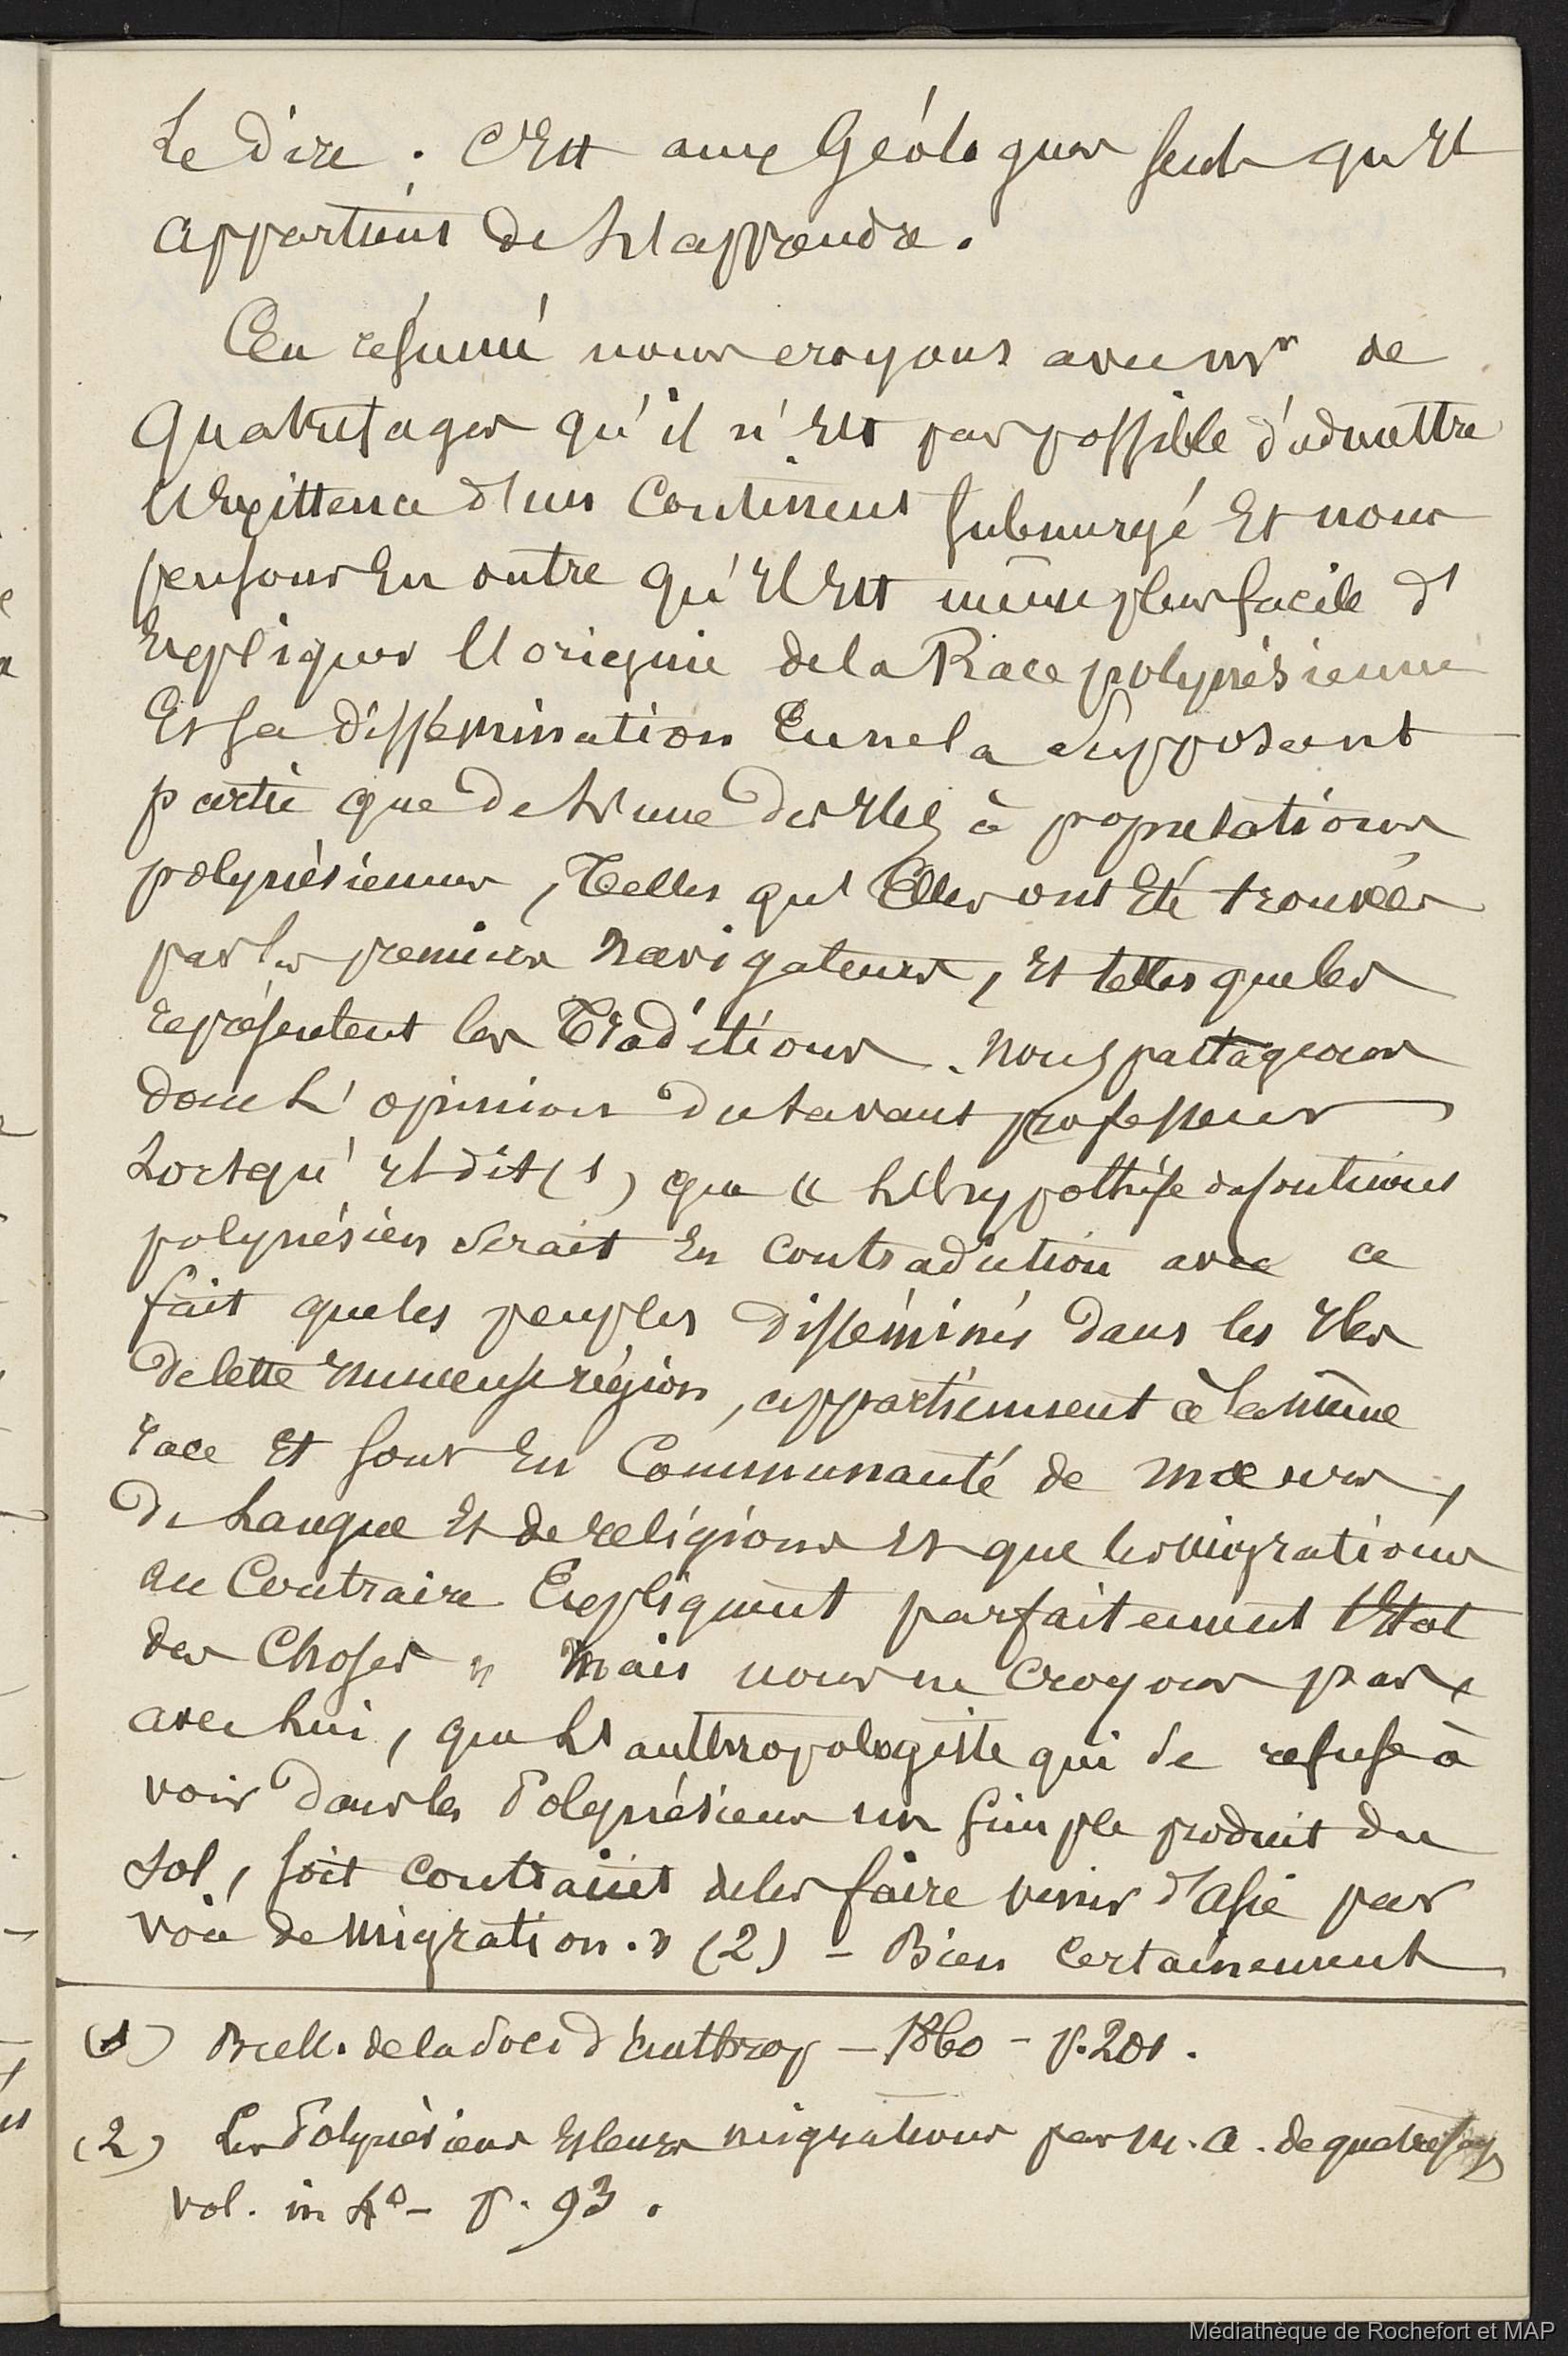 Le dire. C'est aux Géologues seuls qu'il
appartient de l'apprendre.
En résumé nous croyons avec Mr de
Quatrefages qu'il n'est pas possible d'admettre
l'existence d'un Continent submergé Et nous
pensons En outre qu'il Est même plus facile d'
Expliquer l'origine de la Race polynésienne
Et sa dissémination En ne la supposant
partie que de l'une des îles à populations
polynésiennes, Telles qu'Elles ont Eté trouvées
par les premiers navigateurs, Et telles que les
représentent les Traditions. Nous partageons
donc l'opinion du savant professeur
Lorsqu'il dit (1) que « l'hypothèse du continent
polynésien serait En Contradiction avec ce
fait que les peuples disséminés dans les îles
de cette immense région, appartiennent à la même
race Et sont En Communauté de mœurs,
de Langue Et de religions Et que les migrations
au Contraire Expliquent parfaitement l'Etat
des Choses » Mais nous ne Croyons pas,
avec Lui, que L'anthropologiste qui se refuse à
voir dans les Polynésiens un simple produit du
sol, soit contraint de les faire venir d'Asie par
voie de migration. » (2) – Bien Certainement
(1) Bull. de la Soc. d'Anthrop – 1860 – p. 201.
(2) Les Polynésiens Et leurs migrations par M. A. de quatrefages
vol. in 4° – p. 93.
Médiathèque de Rochefort et MAP